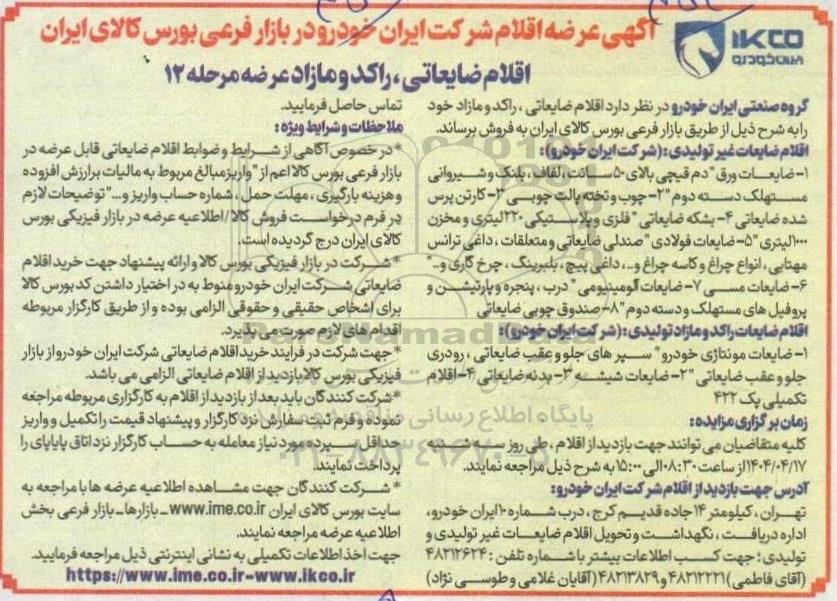 IKCO
ایران خودرو
آگهی عرضه اقلام شرکت ایران خودرو در بازار فرعی بورس کالای ایران
اقلام ضایعاتی، راکد و مازاد عرضه مرحله ۱۲
گروه صنعتی ایران خودرو در نظر دارد اقلام ضایعاتی، راکد و مازاد خود
را به شرح ذیل از طریق بازار فرعی بورس کالای ایران به فروش برساند.
اقلام ضایعات غیر تولیدی: (شرکت ایران خودرو):
۱- ضایعات ورق "دم قیچی بالای ۵۰ سانت، لفاف، بلنک و شیروانی
مستهلک دسته دوم "۲- چوب و تخته پالت چوبی ۳- کارتن پرس
شده ضایعاتی ۴- بشکه ضایعاتی "فلزی و پلاستیکی ۲۲۰ لیتری و مخزن
۱۰۰۰ لیتری "۵- ضایعات فولادی "صندلی ضایعاتی و متعلقات، داغی ترانس
مهتابی، انواع چراغ و کاسه چراغ و..، داغی پیچ، بلبرینگ، چرخ گاری و.."
۶- ضایعات مسی ۷- ضایعات آلومینیومی "درب، پنجره و پارتیشن و
پروفیل های مستهلک و دسته دوم "۸- صندوق چوبی ضایعاتی
اقلام ضایعات راکد و مازاد تولیدی: (شرکت ایران خودرو):
۱- ضایعات مونتاژی خودرو "سپر های جلو و عقب ضایعاتی، رودری
جلو و عقب ضایعاتی "۲- ضایعات شیشه ۳- بدنه ضایعاتی ۴- اقلام
تکمیلی پک ۴۲۲
زمان برگزاری مزایده:
کلیه متقاضیان می توانند جهت بازدید از اقلام، طی روز سه شنبه
۱۴۰۴/۰۴/۱۷ از ساعت ۰۸:۳۰ الی ۱۵:۰۰ به شرح ذیل مراجعه نمایند.
آدرس جهت بازدید از اقلام شرکت ایران خودرو:
تهران، کیلومتر ۱۴ جاده قدیم کرج، درب شماره ۱۰ ایران خودرو،
اداره دریافت، نگهداشت و تحویل اقلام ضایعات غیر تولیدی و
تولیدی؛ جهت کسب اطلاعات بیشتر با شماره تلفن: ۴۸۲۱۲۶۲۴
(آقای فاطمی) ۴۸۲۱۲۲۲۱ و ۴۸۲۱۳۸۲۹ (آقایان غلامی و طوسی نژاد)
تماس حاصل فرمایید.
ملاحظات و شرایط ویژه:
* در خصوص آگاهی از شرایط و ضوابط اقلام ضایعاتی قابل عرضه در
بازار فرعی بورس کالا اعم از "واریز مبالغ مربوط به مالیات بر ارزش افزوده
و هزینه بارگیری، مهلت حمل، شماره حساب واریز و..." توضیحات لازم
در فرم درخواست فروش کالا / اطلاعیه عرضه در بازار فیزیکی بورس
کالای ایران درج گردیده است.
* شرکت در بازار فیزیکی بورس کالا و ارائه پیشنهاد جهت خرید اقلام
ضایعاتی شرکت ایران خودرو منوط به در اختیار داشتن کد بورس کالا
برای اشخاص حقیقی و حقوقی الزامی بوده و از طریق کارگزار مربوطه
اقدام های لازم صورت می پذیرد.
* جهت شرکت در فرایند خرید اقلام ضایعاتی شرکت ایران خودرو از بازار
فیزیکی بورس کالا بازدید از اقلام ضایعاتی الزامی می باشد.
* شرکت کنندگان باید بعد از بازدید از اقلام به کارگزاری مربوطه مراجعه
نموده و فرم ثبت سفارش نزد کارگزار و پیشنهاد قیمت را تکمیل و واریز
حداقل سپرده مورد نیاز معامله به حساب کارگزار نزد اتاق پایاپای را
پرداخت نمایند.
* شرکت کنندگان جهت مشاهده اطلاعیه عرضه ها با مراجعه به
سایت بورس کالای ایران www.ime.co.ir_بازارها_بازار فرعی بخش
اطلاعیه عرضه مراجعه نمایند.
جهت اخذ اطلاعات تکمیلی به نشانی اینترنتی ذیل مراجعه فرمایید.
https://www.ime.co.ir-www.ikco.ir
ParsNamadData
پایگاه اطلاع رسانی مناقصه و مزایده
۰۲۱-۸۸۳۴۹۶۷۰-۵